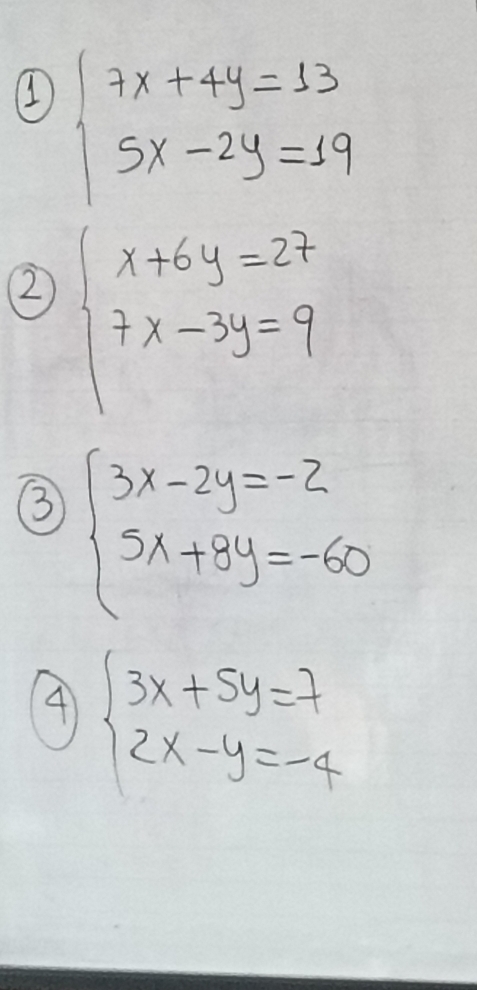 ① 7x + 4y = 13
5x - 2y = 19
② x + 6y = 27
7x - 3y = 9
③ 3x - 2y = -2
5x + 8y = -60
④ 3x + 5y = 7
2x - y = -4